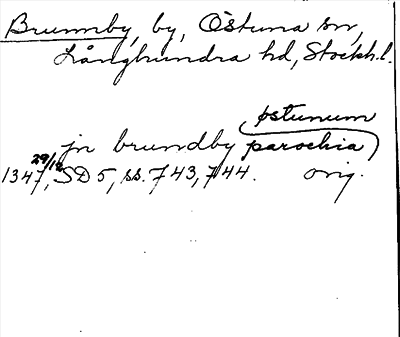 Brunnby, by, Östuna sn,
Långhundra hd, Stockh.l.
østunum
jn brundby parochia
29/12
1347, SD 5, ss. 743, 744. orig.